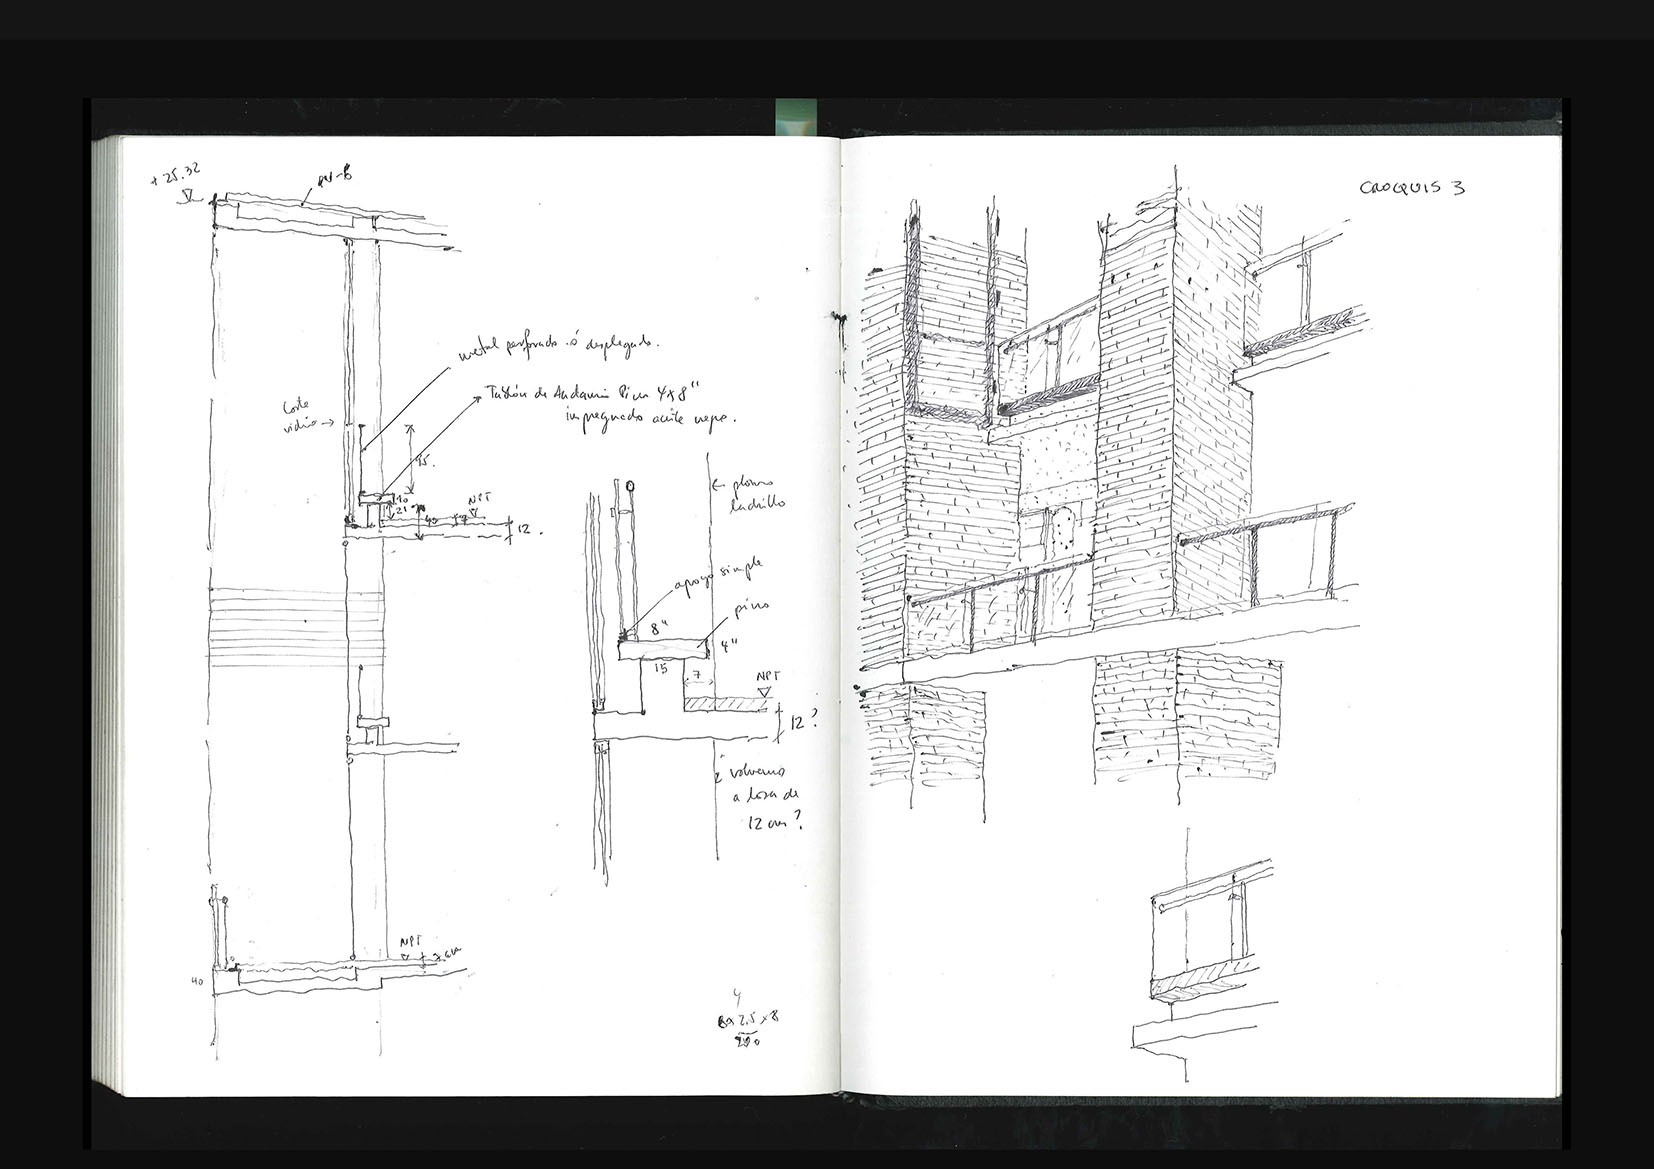 + 25.32
metal perforado ó desplegado.
Tablón de Andamio Pino 4x8"
impregnado aceite negro.
Corte
vidrio →
45.
10
21
40
NPT
12.
← plomo
ladrillo
apoyo simple
pino
8"
4"
15
7
NPT
12?
¿ volvemos
a losa de
12 cm?
NPT
40
4
x 2.5 x 8
CROQUIS 3